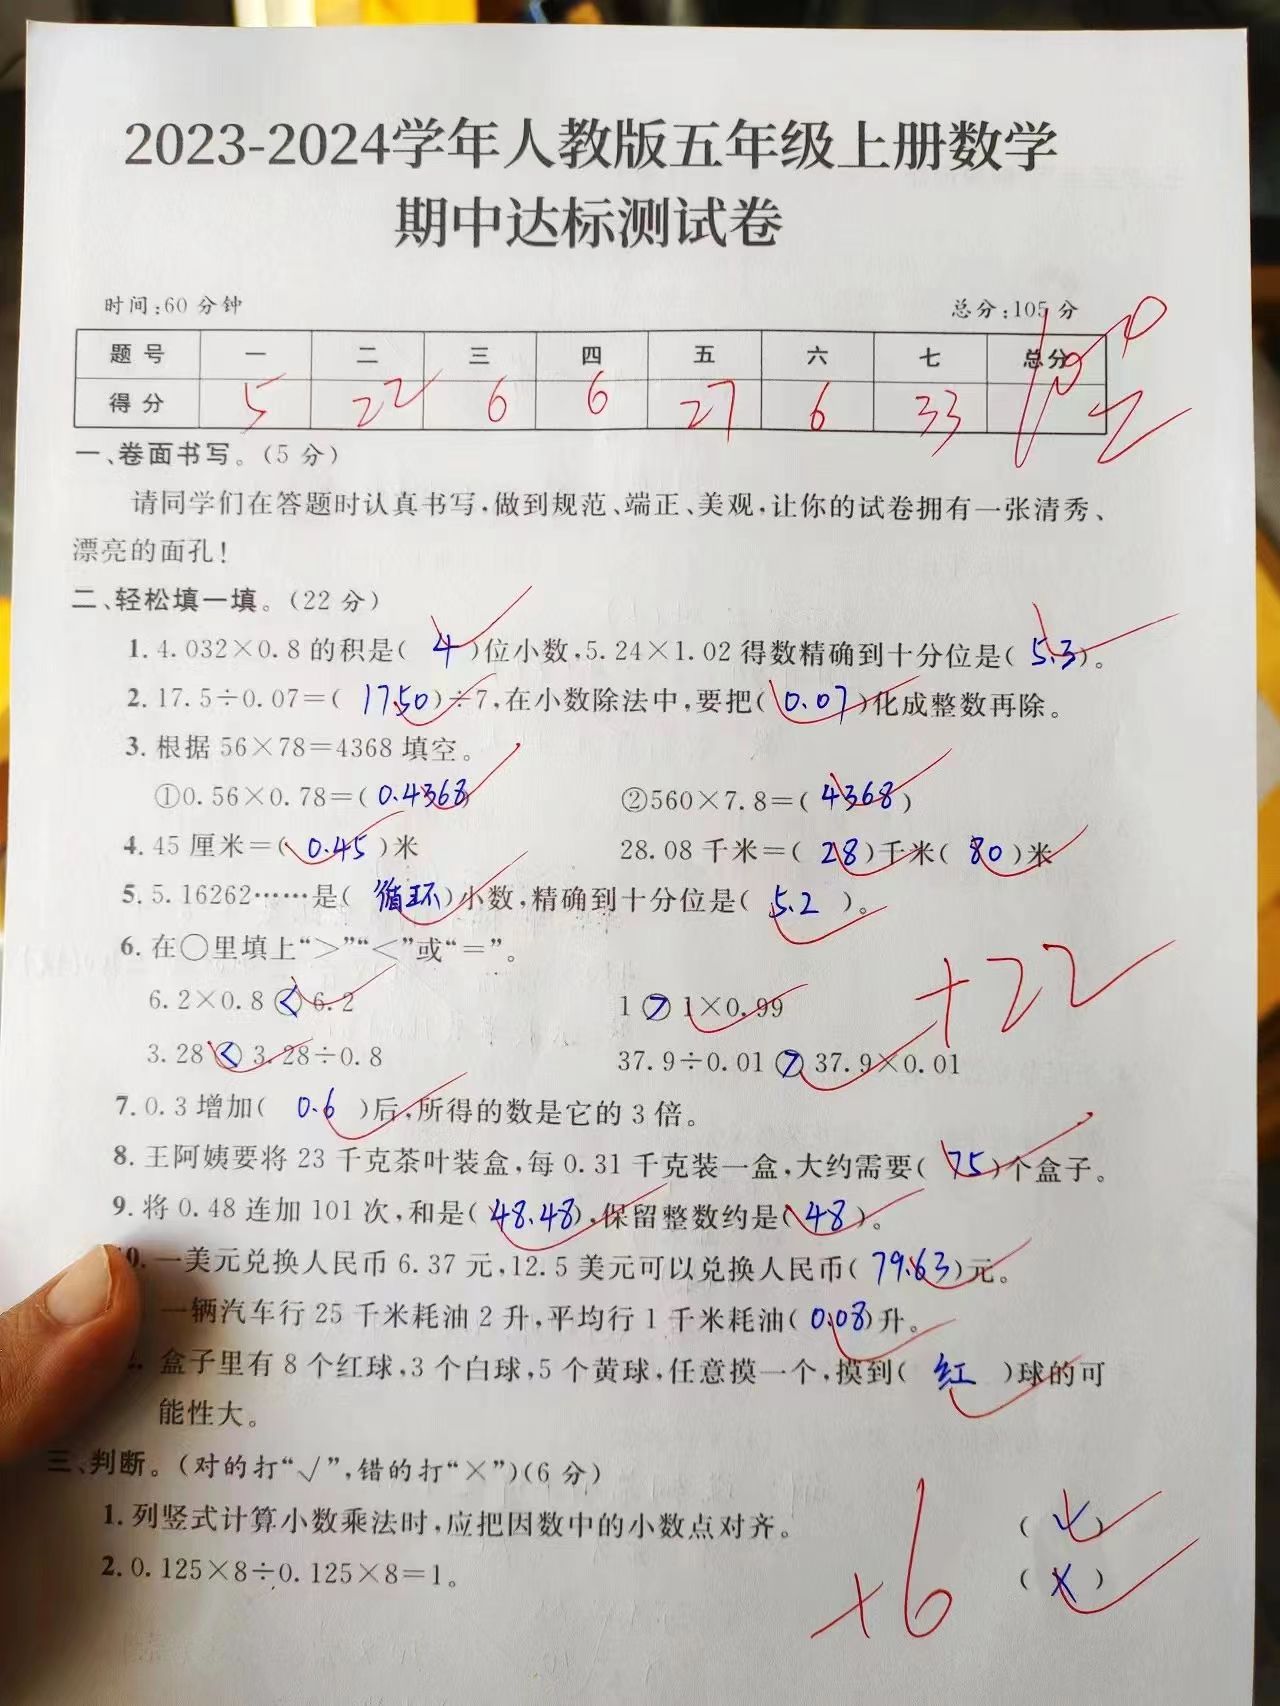 2023-2024学年人教版五年级上册数学
期中达标测试卷
时间:60 分钟 总分:105 分
题 号 一 二 三 四 五 六 七 总分
得 分 5 22 6 6 27 6 33
一、卷面书写。(5 分)
请同学们在答题时认真书写,做到规范、端正、美观,让你的试卷拥有一张清秀、
漂亮的面孔!
二、轻松填一填。(22 分)
1. 4.032×0.8 的积是( 4 )位小数,5.24×1.02 得数精确到十分位是( 5.3 )。
2. 17.5÷0.07=( 1750 )÷7,在小数除法中,要把( 0.07 )化成整数再除。
3. 根据 56×78=4368 填空。
①0.56×0.78=( 0.4368 ) ②560×7.8=( 4368 )
4. 45 厘米=( 0.45 )米 28.08 千米=( 28 )千米( 80 )米
5. 5.16262……是( 循环 )小数,精确到十分位是( 5.2 )。
6. 在○里填上“>”“<”或“=”。
6.2×0.8 < 6.2 1 > 1×0.99
3.28 < 3.28÷0.8 37.9÷0.01 > 37.9×0.01
+22
7. 0.3 增加( 0.6 )后,所得的数是它的 3 倍。
8. 王阿姨要将 23 千克茶叶装盒,每 0.31 千克装一盒,大约需要( 75 )个盒子。
9. 将 0.48 连加 101 次,和是( 48.48 ),保留整数约是( 48 )。
0. 一美元兑换人民币 6.37 元,12.5 美元可以兑换人民币( 79.63 )元。
一辆汽车行 25 千米耗油 2 升,平均行 1 千米耗油( 0.08 )升。
盒子里有 8 个红球,3 个白球,5 个黄球,任意摸一个,摸到( 红 )球的可
能性大。
三、判断。(对的打“√”,错的打“×”)(6 分)
1. 列竖式计算小数乘法时,应把因数中的小数点对齐。 ( × )
2. 0.125×8÷0.125×8=1。 ( × )
+6